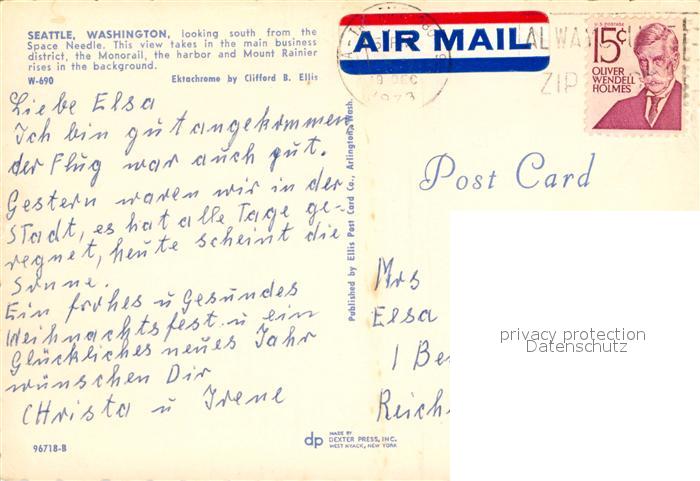 SEATTLE, WASHINGTON, looking south from the
Space Needle. This view takes in the main business
district, the Monorail, the harbor and Mount Rainier
rises in the background.
W-690 Ektachrome by Clifford B. Ellis
Liebe Elsa
Ich bin gut angekommen
der Flug war auch gut.
Gestern waren wir in der
Stadt, es hat alle Tage ge-
regnet, heute scheint die
Sonne.
Ein frohes u Gesundes
Weihnachtsfest u ein
Glückliches neues Jahr
wünschen Dir
CHrista u Irene
96718-B
dp MADE BY
DEXTER PRESS, INC.
WEST NYACK, NEW YORK
Published by Ellis Post Card Co., Arlington, Wash.
AIR MAIL
DEC
1973
ALWAYS
ZIP
U.S. POSTAGE
15¢
OLIVER
WENDELL
HOLMES
Post Card
Mrs
Elsa
1 Be
Reich
privacy protection
Datenschutz